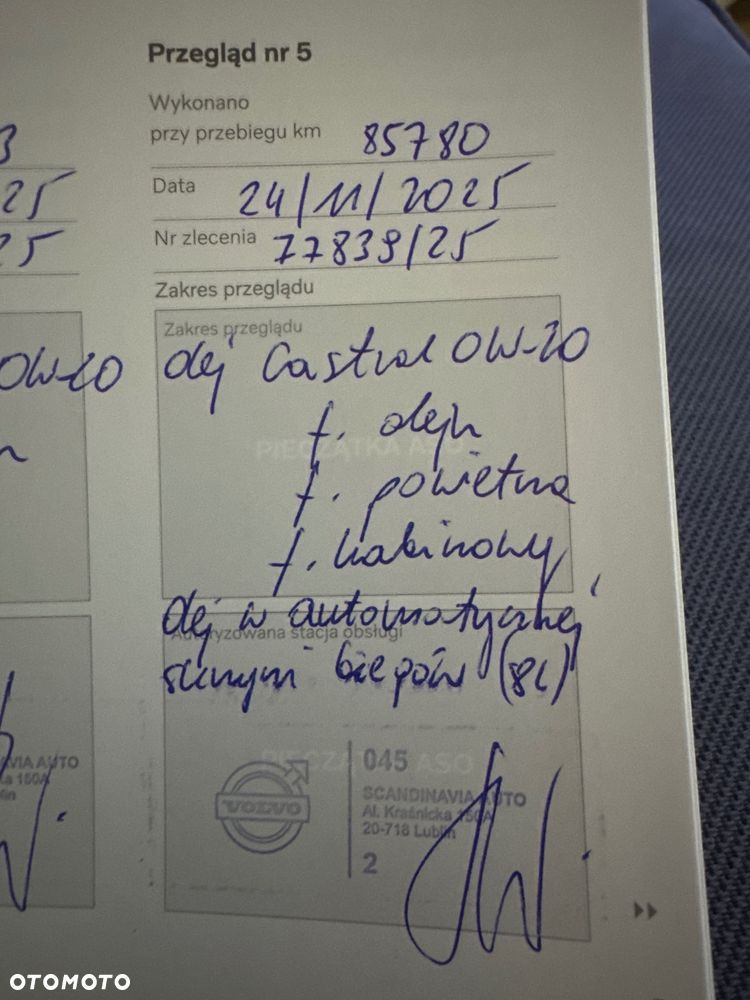 Przegląd nr 5
Wykonano
przy przebiegu km 85780
Data 24/11/2025
Nr zlecenia 77839/25
Zakres przeglądu
Zakres przeglądu
olej Castrol 0W-20
f. oleju
PIECZĄTKA ASO
f. powietrza
f. kabinowy
olej w automatycznej
Autoryzowana stacja obsługi
skrzyni biegów (8L)
PIECZĄTKA ASO
VOLVO
045
SCANDINAVIA AUTO
Al. Kraśnicka 150A
20-718 Lublin
2
3
25
25
0W-20
AVIA AUTO
ka 150A
lin
OTOMOTO